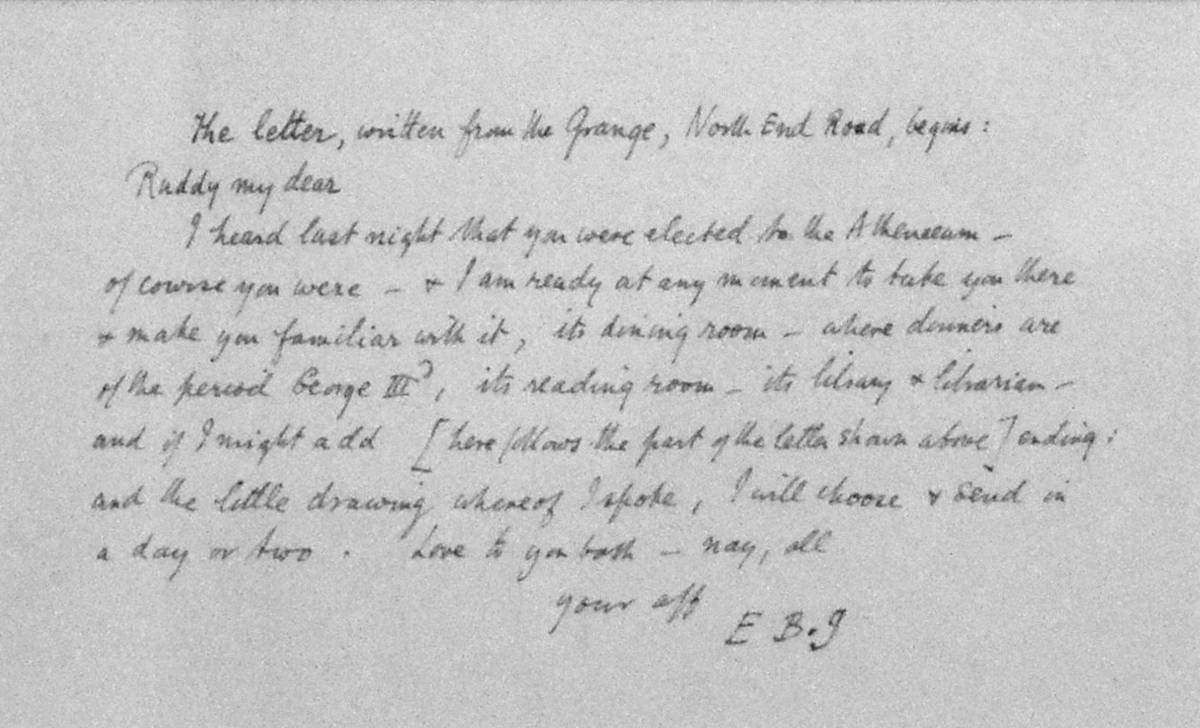 The letter, written from the Grange, North End Road, begins:
Ruddy my dear
I heard last night that you were elected to the Athenaeum –
of course you were – & I am ready at any moment to take you there
& make you familiar with it, its dining room – where dinners are
of the period George III, its reading room – its library & librarian –
and if I might add [here follows the part of the letter shown above] ending:
and the little drawing whereof I spoke, I will choose & send in
a day or two. Love to you both – nay, all
your aff
E B.J